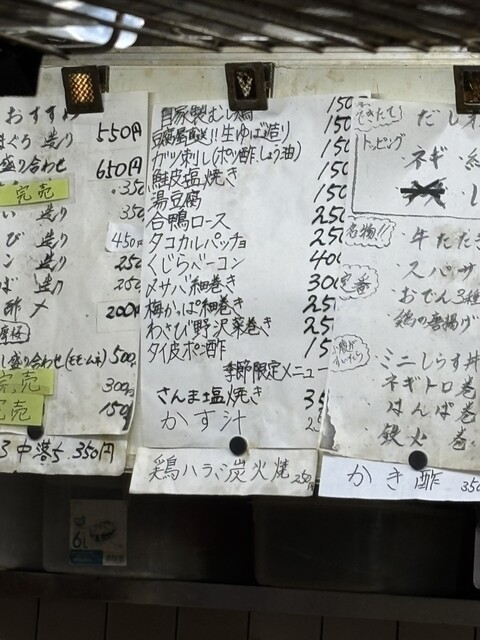 おすすめ
まぐろ 造り 550円
盛り合わせ 650円
完売 350
い 造り 350
び 造り 450円
ン 造り 250
ば 造り 250
酢〆 200円
し盛り合わせ 500
完売 300
完売 150
中落ち 350円
自家製むし鶏 150
豆腐屋直送!!生ゆば造り 150
ガツ刺し(ポン酢、しょう油) 150
鮭皮塩焼き 150
湯豆腐 150
合鴨ロース 250
タコカルパッチョ 250
くじらベーコン 400
〆サバ細巻き 300
梅かっぱ細巻き 25
わさび野沢菜巻き 25
タイ皮ポン酢 15
季節限定メニュー
さんま塩焼き 35
かす汁 2
鶏ハラミ炭火焼 250円
できたて!
だし
トッピング
ネギ
し
名物!!
牛たたき
スパサ
定番
おでん3種
鶏の唐揚げ
ミニしらす丼
ネギトロ巻
はんぱ巻
鉄火巻
かき酢 350
6L